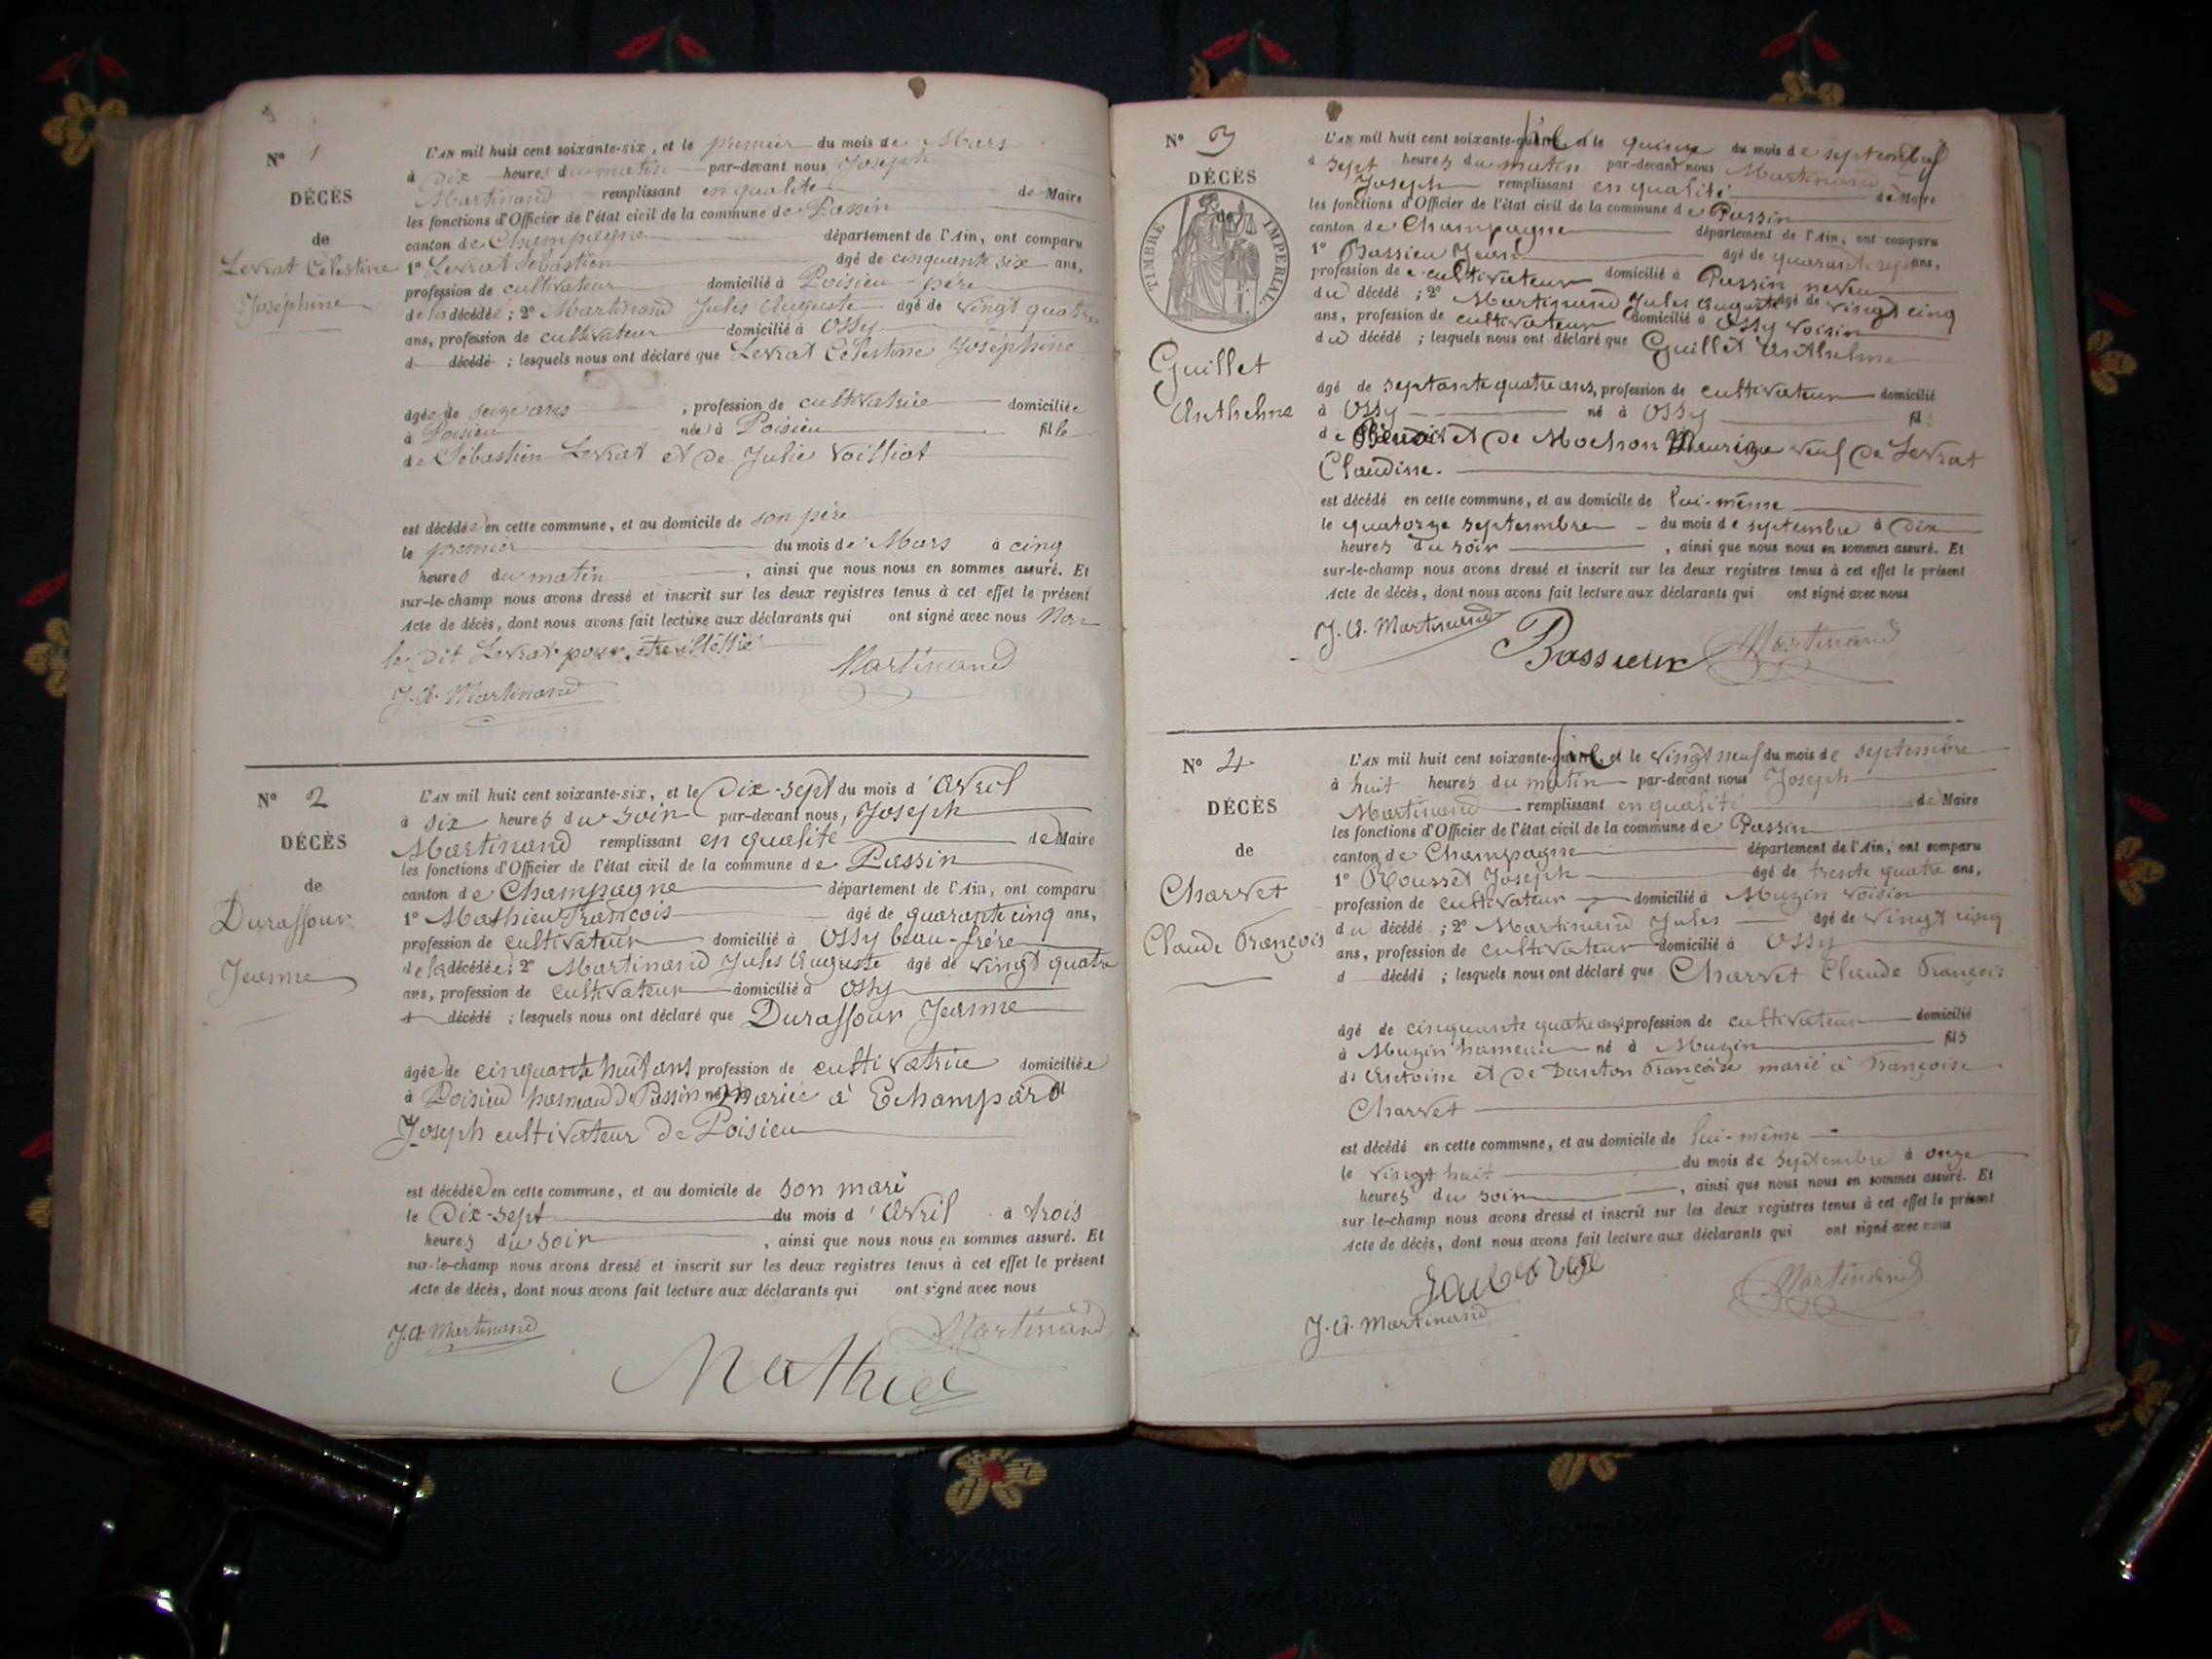 N° 1
DÉCÈS
de
Levrat Célestine
Joséphine
L'AN mil huit cent soixante-six, et le premier du mois de Mars
à dix heures du matin par-devant nous Joseph
Martinand remplissant en qualité de Maire
les fonctions d'Officier de l'état civil de la commune de Passin
canton de Champagne département de l'Ain, ont comparu
1° Levrat Sébastien âgé de cinquante six ans,
profession de cultivateur domicilié à Poisieu père
de la décédée ; 2° Martinand Jules Auguste âgé de vingt quatre
ans, profession de cultivateur domicilié à Ossy
d décédé ; lesquels nous ont déclaré que Levrat Célestine Joséphine
âgée de seize ans , profession de cultivatrice domiciliée
à Poisieu née à Poisieu fille
de Sébastien Levrat et de Julie Voilliot
est décédée en cette commune, et au domicile de son père
le premier du mois de Mars à cinq
heures du matin , ainsi que nous nous en sommes assuré. Et
sur-le-champ nous avons dressé et inscrit sur les deux registres tenus à cet effet le présent
Acte de décès, dont nous avons fait lecture aux déclarants qui ont signé avec nous Non
le dit Levrat pour être illettré
J. A. Martinand Martinand
N° 2
DÉCÈS
de
Durassour
Jeanne
L'AN mil huit cent soixante-six, et le dix-sept du mois d'Avril
à six heures du soir par-devant nous, Joseph
Martinand remplissant en qualité de Maire
les fonctions d'Officier de l'état civil de la commune de Passin
canton de Champagne département de l'Ain, ont comparu
1° Mathieu François âgé de quarante cinq ans,
profession de cultivateur domicilié à Ossy beau-frère
de la décédée ; 2° Martinand Jules Auguste âgé de vingt quatre
ans, profession de cultivateur domicilié à Ossy
d décédé ; lesquels nous ont déclaré que Durassour Jeanne
âgée de cinquante huit ans profession de cultivatrice domiciliée
à Poisieu hameau de Passin mariée à Echampard
Joseph cultivateur de Poisieu
est décédée en cette commune, et au domicile de son mari
le dix-sept du mois d'Avril à trois
heures du soir , ainsi que nous nous en sommes assuré. Et
sur-le-champ nous avons dressé et inscrit sur les deux registres tenus à cet effet le présent
Acte de décès, dont nous avons fait lecture aux déclarants qui ont signé avec nous
J. A. Martinand Martinand
Mathieu
N° 3
DÉCÈS
de
TIMBRE IMPÉRIAL
Guillet
Anthelme
L'AN mil huit cent soixante-six et le quinze du mois de septembre
à sept heures du matin par-devant nous Martinand
Joseph remplissant en qualité de Maire
les fonctions d'Officier de l'état civil de la commune de Passin
canton de Champagne département de l'Ain, ont comparu
1° Bassieu Jean âgé de quarante sept ans,
profession de cultivateur domicilié à Passin neveu
du décédé ; 2° Martinand Jules Auguste âgé de vingt cinq
ans, profession de cultivateur domicilié à Ossy voisin
du décédé ; lesquels nous ont déclaré que Guillet Anthelme
âgé de septante quatre ans, profession de cultivateur domicilié
à Ossy né à Ossy fils
de Benoit et de Mochon veuf de Levrat
Claudine.
est décédé en cette commune, et au domicile de lui-même
le quatorze septembre du mois de septembre à dix
heures du soir , ainsi que nous nous en sommes assuré. Et
sur-le-champ nous avons dressé et inscrit sur les deux registres tenus à cet effet le présent
Acte de décès, dont nous avons fait lecture aux déclarants qui ont signé avec nous
J. A. Martinand Bassieux Martinand
N° 4
DÉCÈS
de
Charvet
Claude François
L'AN mil huit cent soixante-six, et le vingt neuf du mois de septembre
à huit heures du matin par-devant nous Joseph
Martinand remplissant en qualité de Maire
les fonctions d'Officier de l'état civil de la commune de Passin
canton de Champagne département de l'Ain, ont comparu
1° Rousset Joseph âgé de trente quatre ans,
profession de cultivateur domicilié à Muzin voisin
du décédé ; 2° Martinand Jules âgé de vingt cinq
ans, profession de cultivateur domicilié à Ossy
d décédé ; lesquels nous ont déclaré que Charvet Claude François
âgé de cinquante quatre ans profession de cultivateur domicilié
à Muzin hameau né à Muzin fils
d'Antoine et de Danton Françoise marié à Françoise
Charvet
est décédé en cette commune, et au domicile de lui-même
le vingt huit du mois de septembre à onze
heures du soir , ainsi que nous nous en sommes assuré. Et
sur le-champ nous avons dressé et inscrit sur les deux registres tenus à cet effet le présent
Acte de décès, dont nous avons fait lecture aux déclarants qui ont signé avec nous
J. A. Martinand Martinand